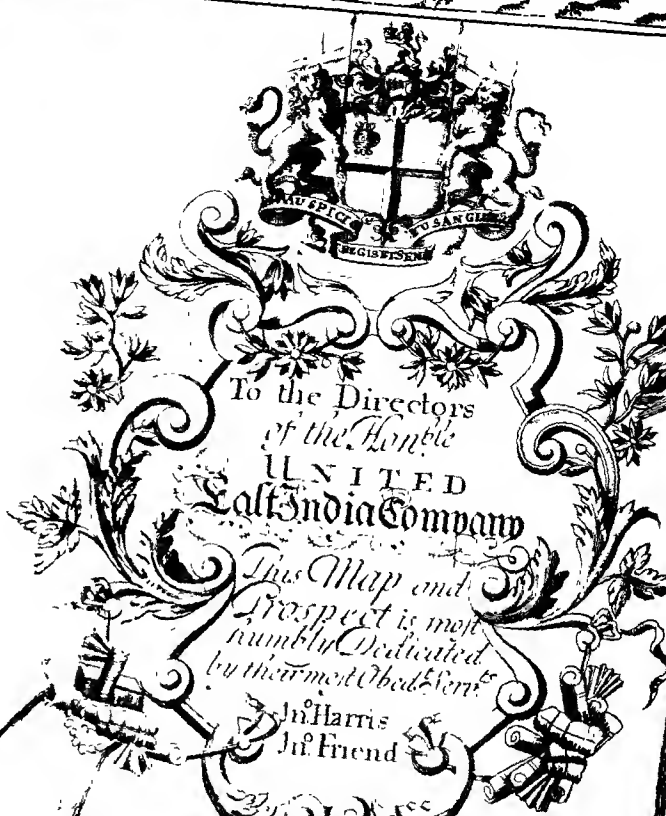 AUSPICI
REGIS ET SEN
US ANGLI
To the Directors
of the Honble
UNITED
East India Company
This Map and
Prospect is most
humbly Dedicated
by their most Obedt Servts
Jno Harris
Jno Friend